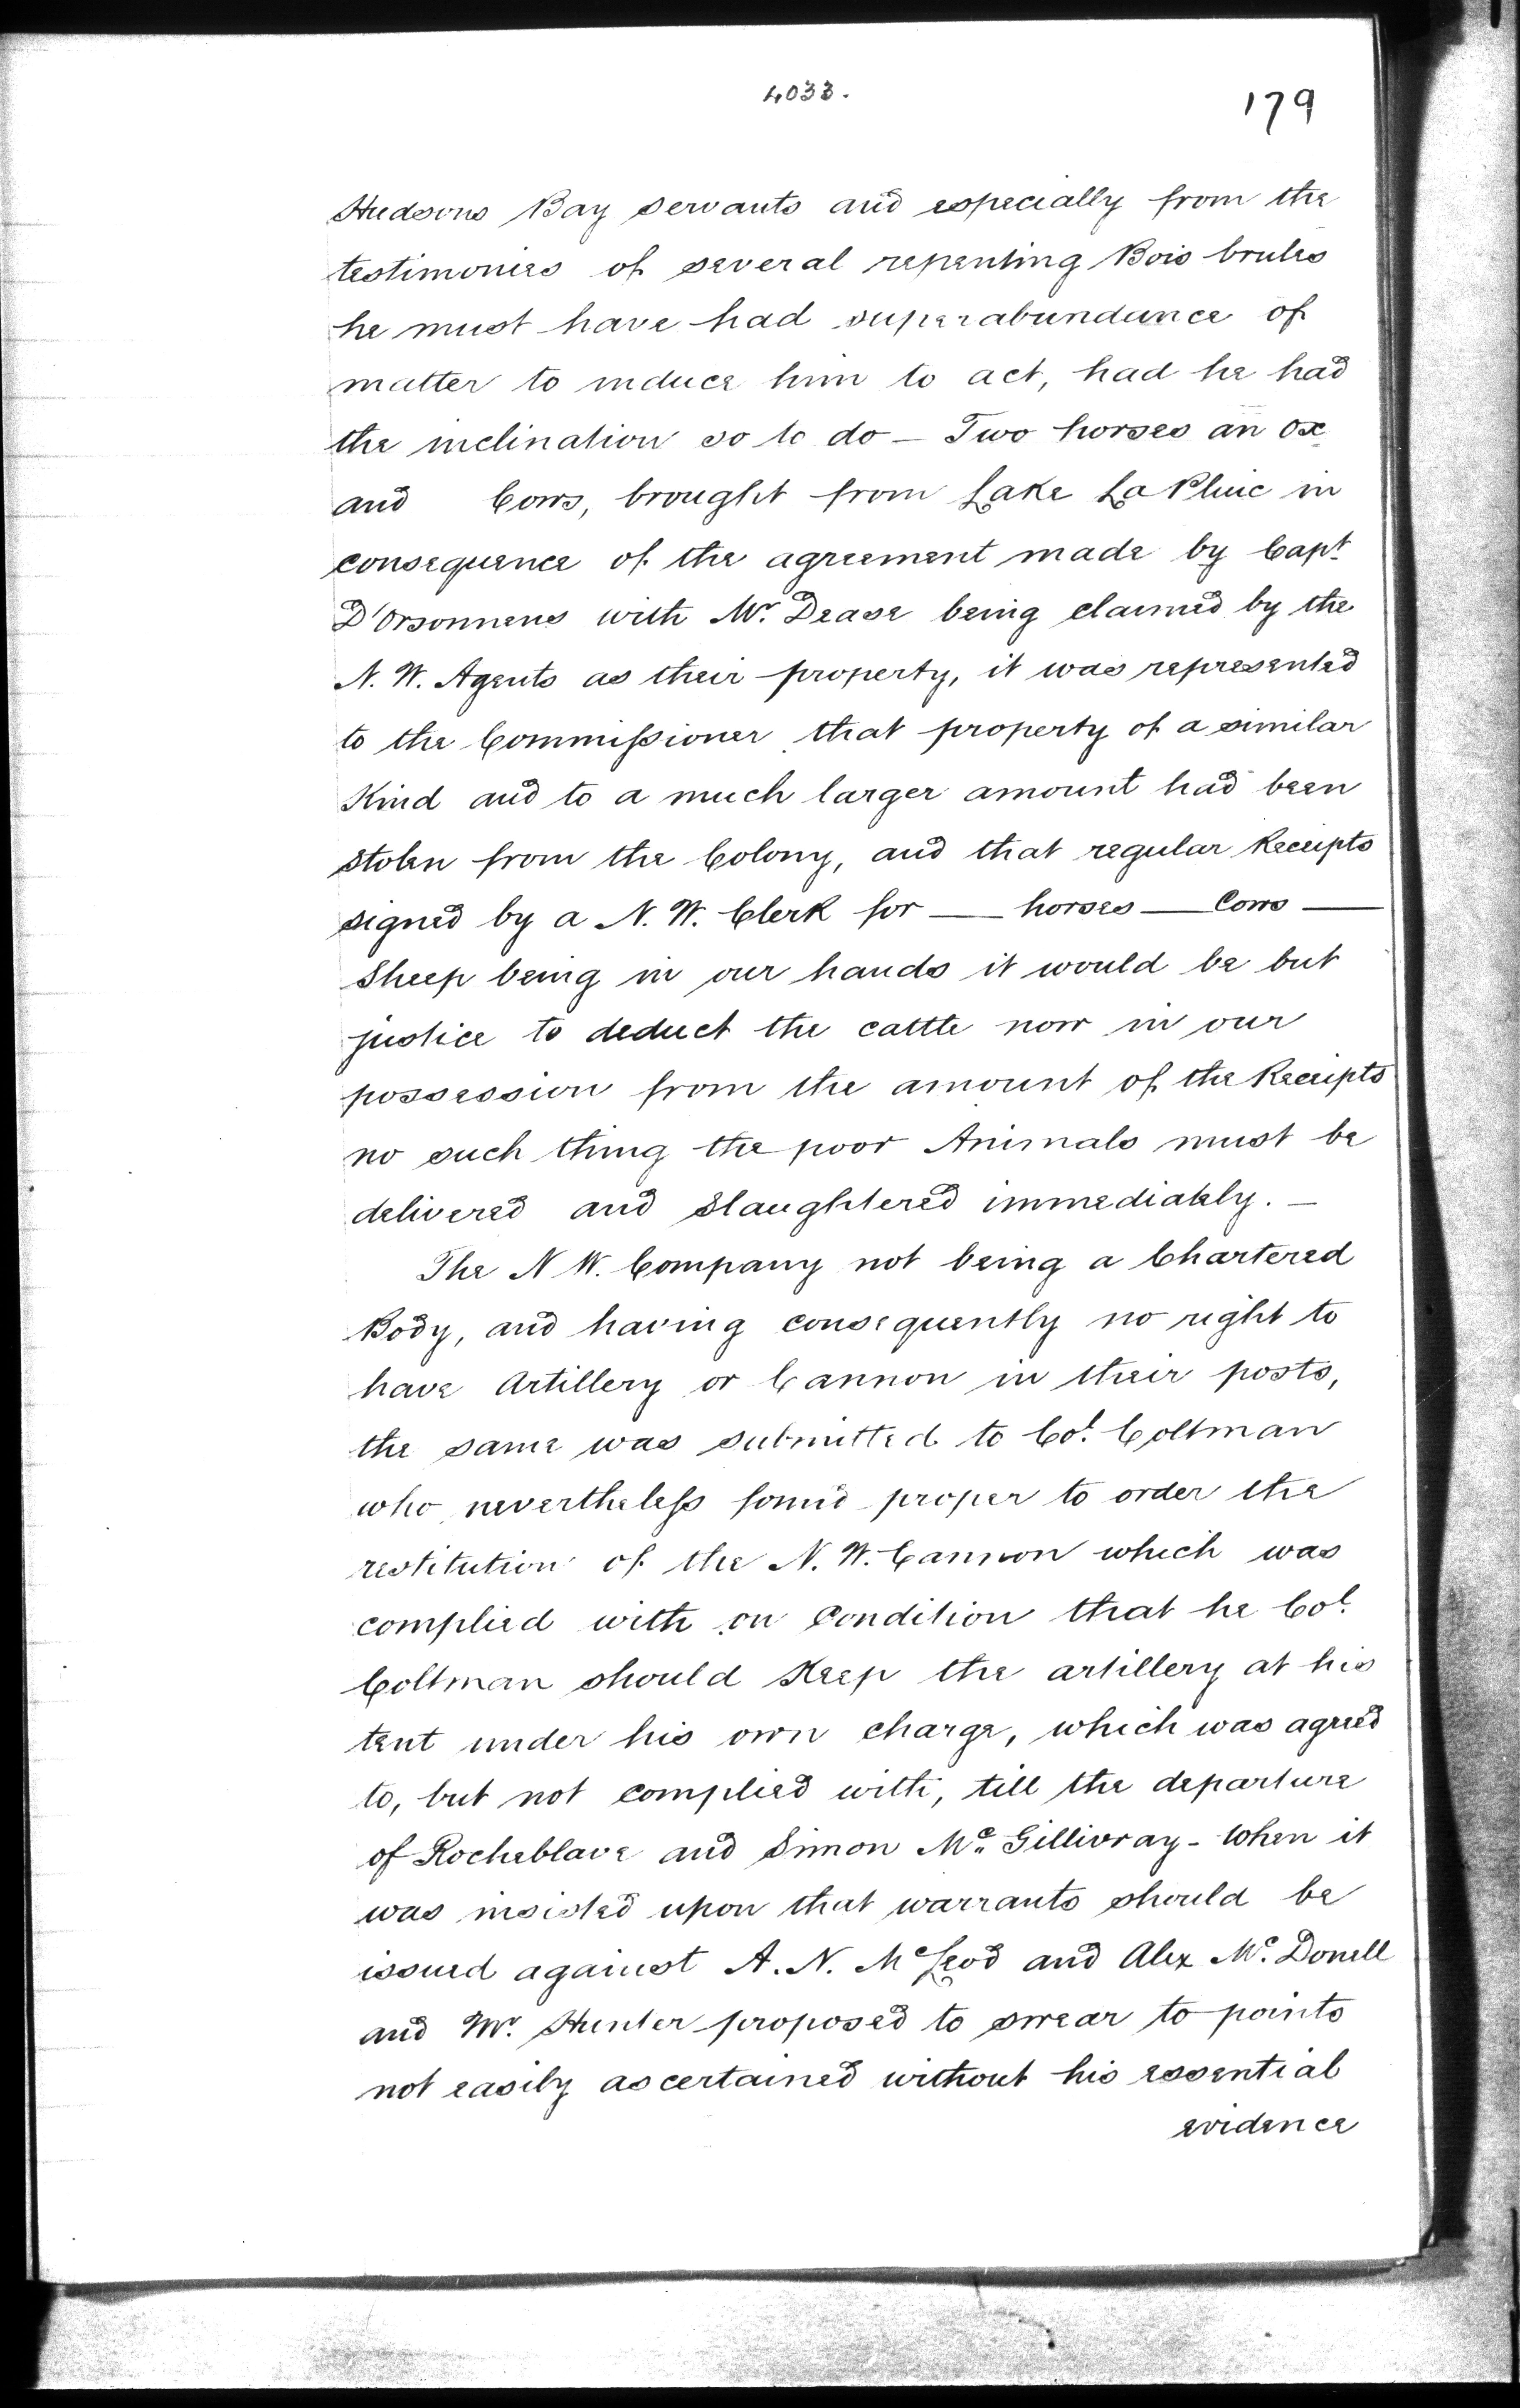 4033.
179
Hudsons Bay servants and especially from the
testimonies of several repenting Bois brules
he must have had superabundance of
matter to induce him to act, had he had
the inclination so to do — Two horses an ox
and Cows, brought from Lake La Pluic in
consequence of the agreement made by Capt.
D'Orsonnens with Mr. Dease being claimed by the
N. W. Agents as their property, it was represented
to the Commissioner that property of a similar
Kind and to a much larger amount had been
stolen from the Colony, and that regular Receipts
signed by a N. W. Clerk for — horses — Cows —
Sheep being in our hands it would be but
justice to deduct the cattle now in our
possession from the amount of the Receipts
no such thing the poor Animals must be
delivered and slaughtered immediately. —
The N W. Company not being a Chartered
Body, and having consequently no right to
have Artillery or Cannon in their posts,
the same was submitted to Col. Coltman
who nevertheless found proper to order the
restitution of the N. W. Cannon which was
complied with on Condition that he Col.
Coltman should Keep the artillery at his
tent under his own charge, which was agreed
to, but not complied with, till the departure
of Rocheblave and Simon Mc. Gillivray - When it
was insisted upon that warrants should be
issued against A. N. McLeod and Alex Mc. Donell
and Mr. Hunter proposed to swear to points
not easily ascertained without his essential
evidence